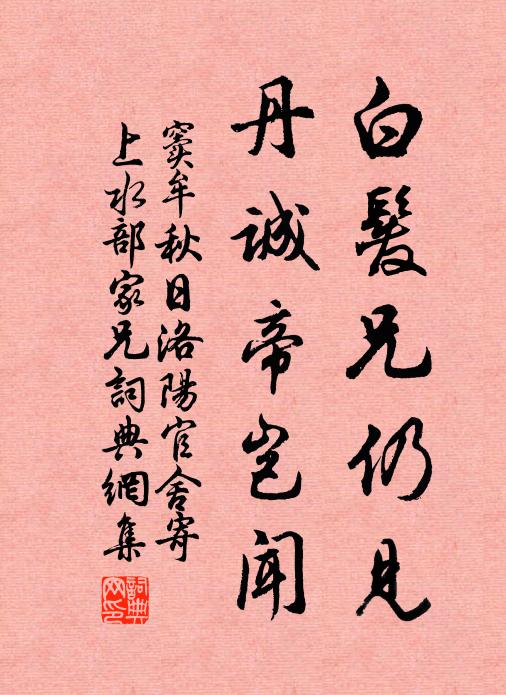 白髮兄仍見
丹誠帝豈聞
竇牟秋日洛陽官舍寄
上水部家兄詞典網集
詞典網印